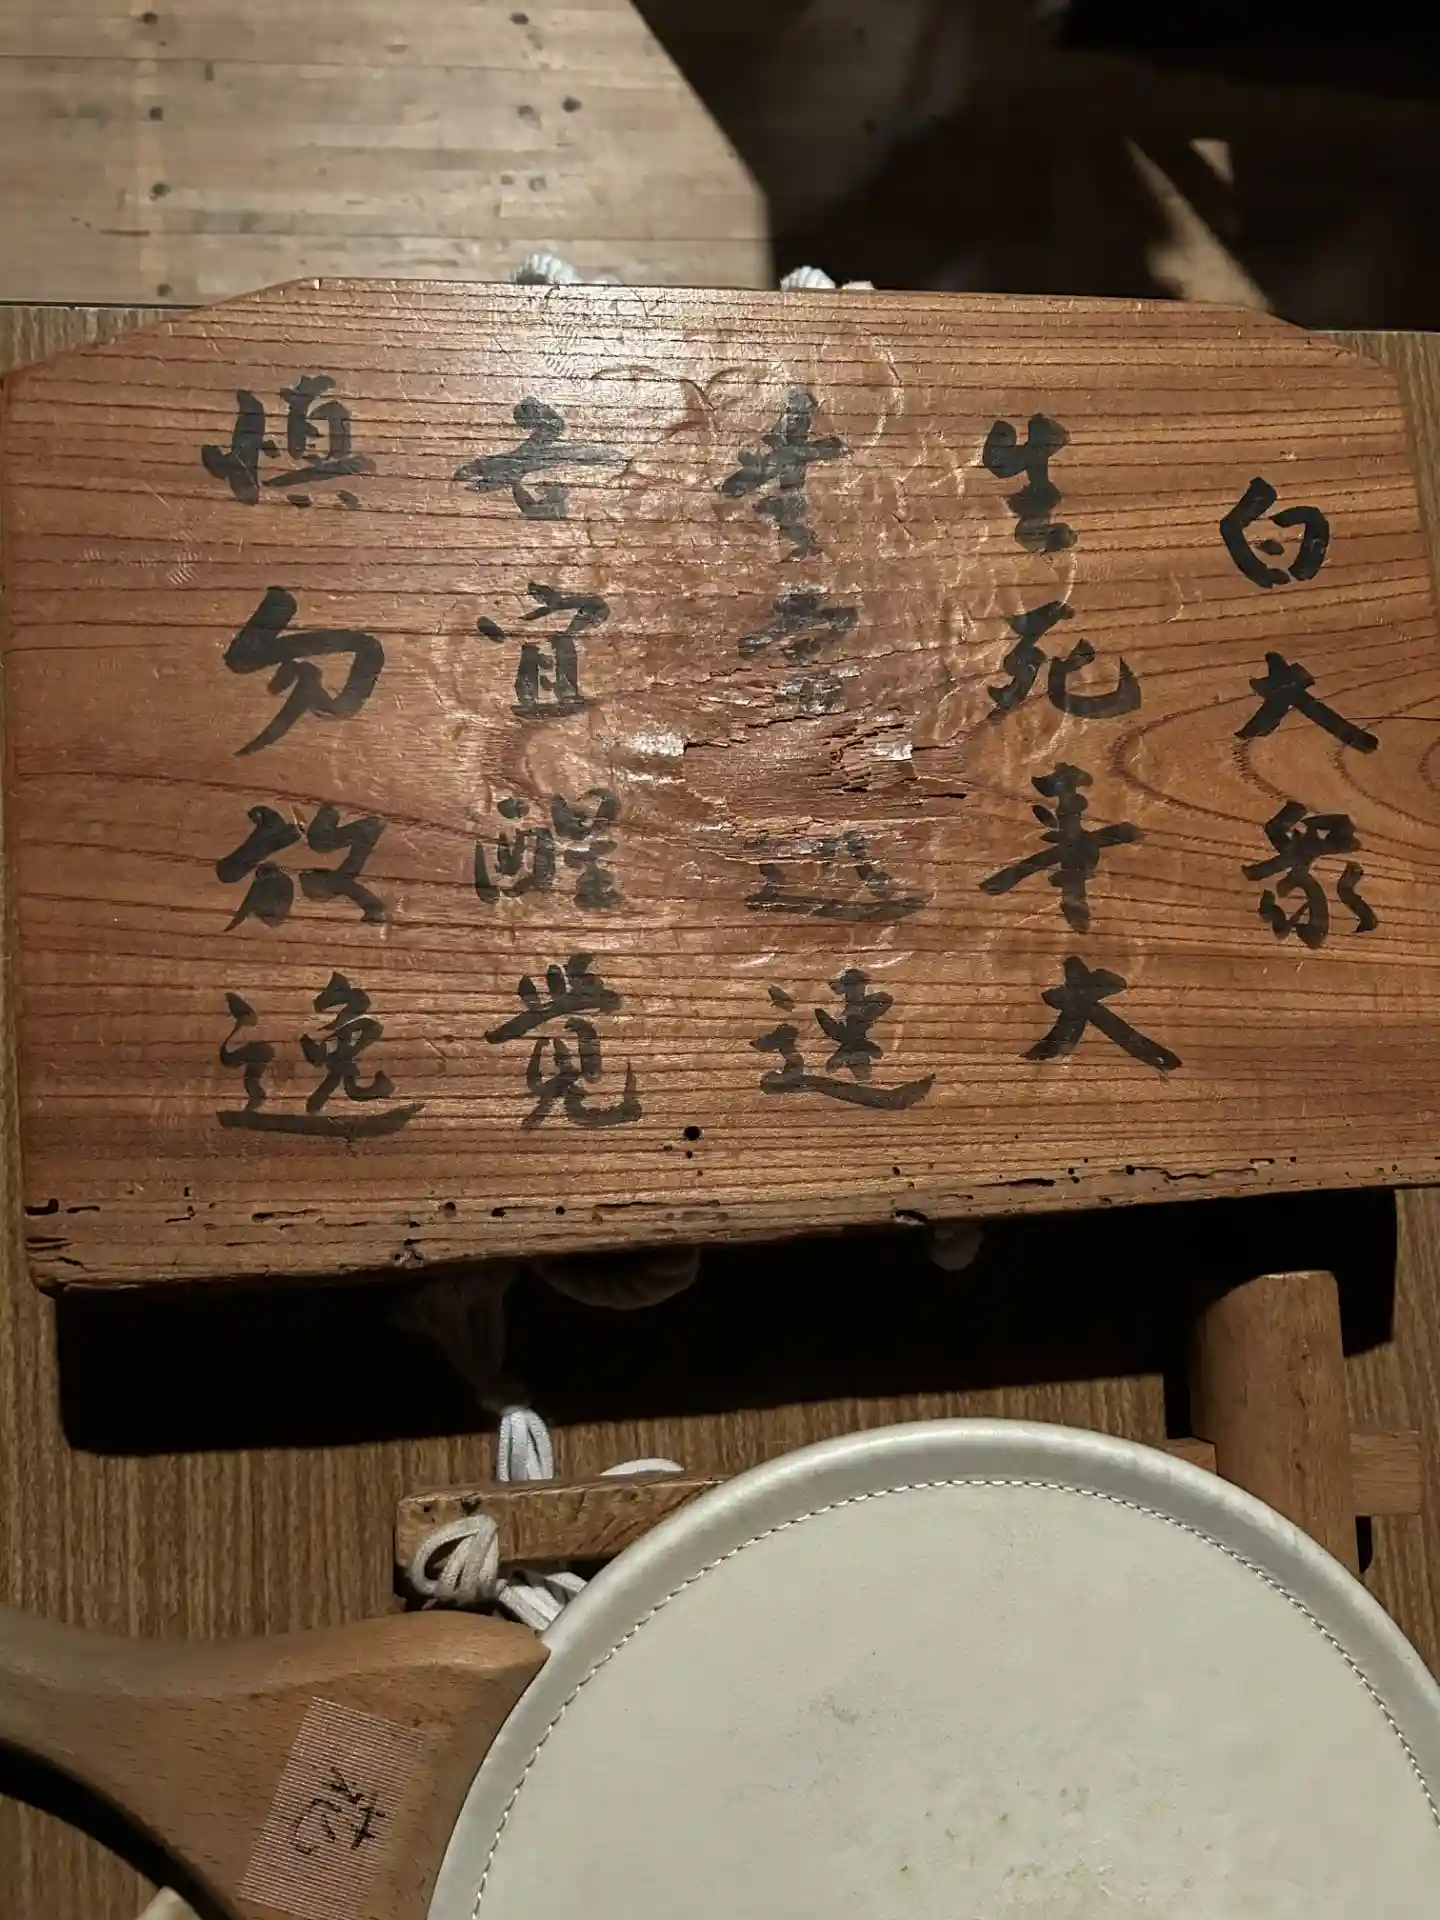 白大衆
生死事大
無常迅速
各宜醒覚
慎勿放逸
花